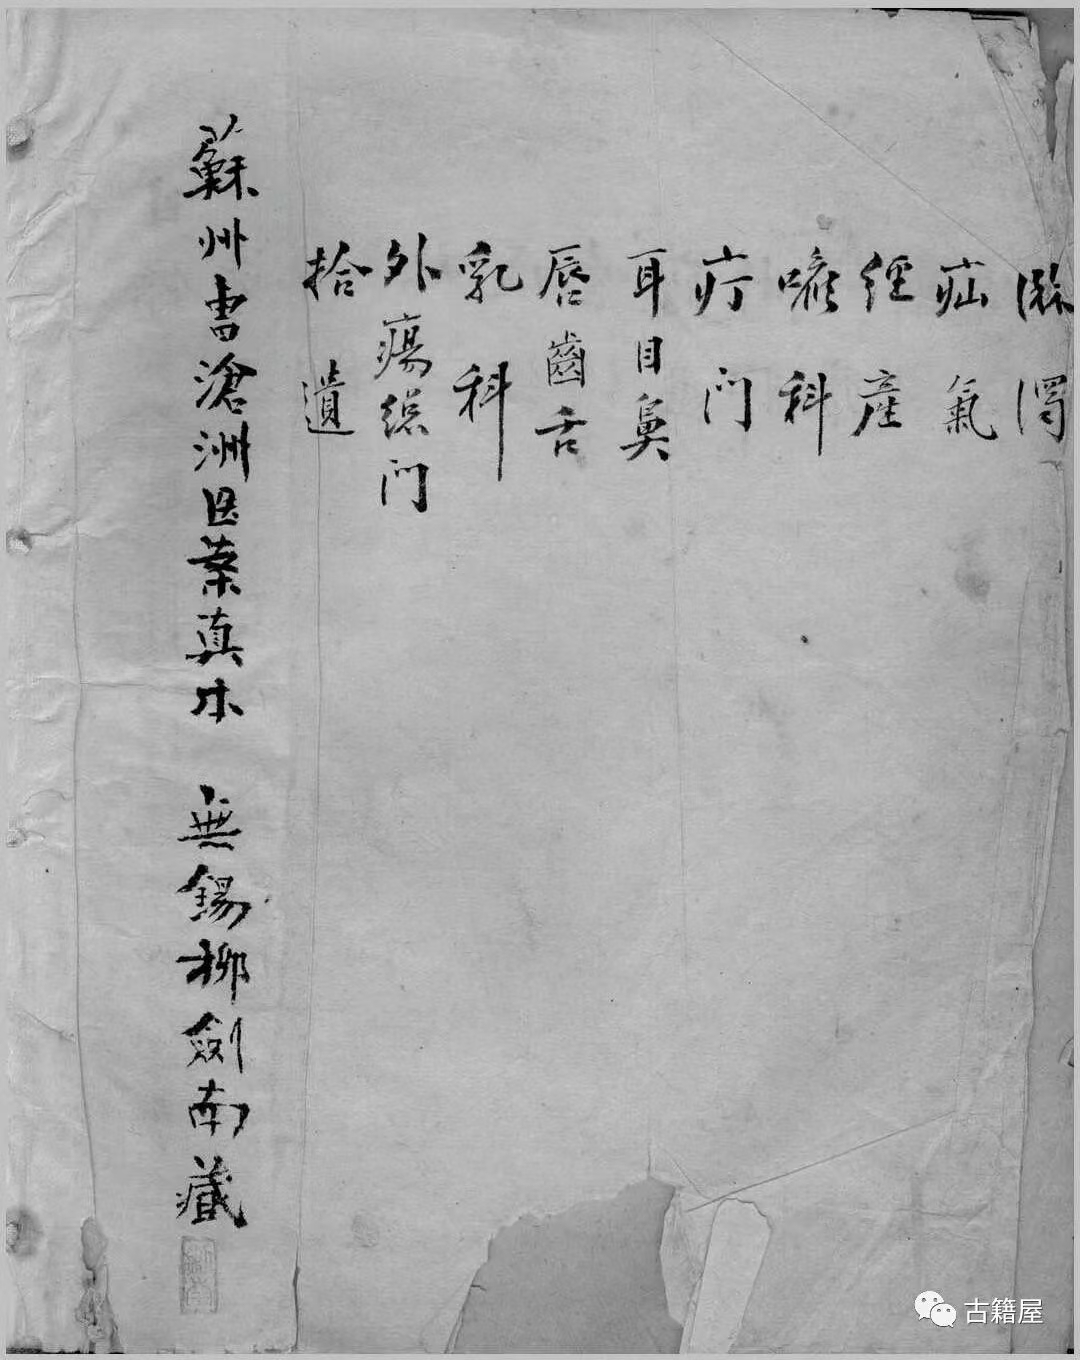 淋濁
疝氣
經產
喉科
疔门
耳目鼻
唇齒舌
乳科
外瘍總门
拾遺
蘇州曹滄洲医案真本 無錫柳劍南藏
古籍屋